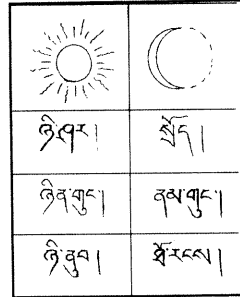 ཉི་ཤར། སྲོད།
ཉིན་གུང་། ནམ་གུང་།
ཉི་ནུབ། ཐོ་རངས།